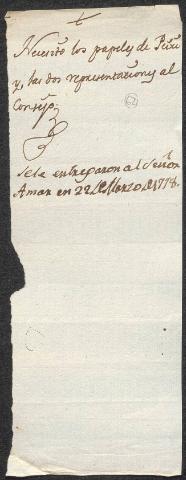 +
Necesito los papeles de Peru
y, las dos representaciones al
Consejo
62
Se le entregaron al Señor
Aman en 22 de Marzo de 1778.